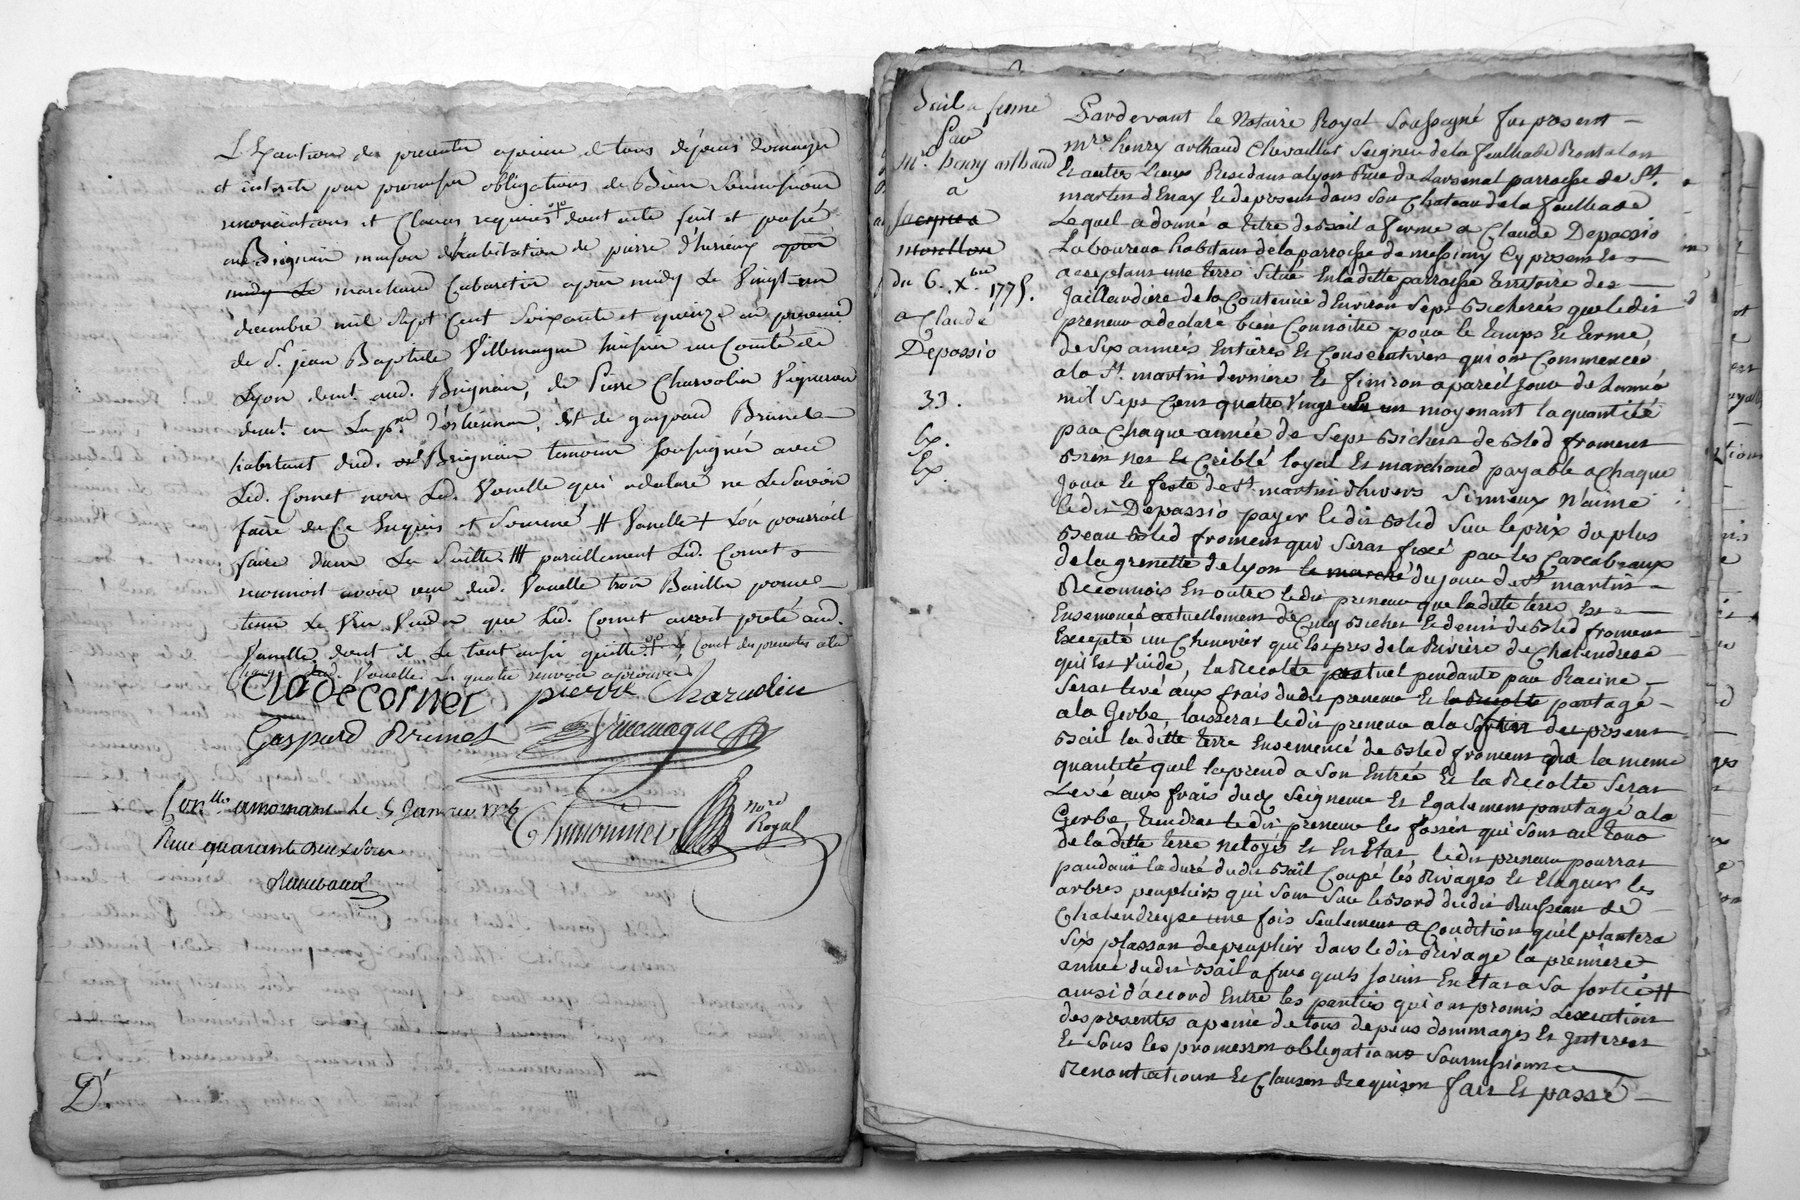 L'Exécution des presentes a peine de tous dépens domages
et interets par promesses obligations de Biens Soumissions
renonciations et Clauses requises dont acte fait et passé
au Brignais maison d'habitation de pierre
midy Le marchand Cabaretier après midy Le Vingt un
décembre mil Sept Cent Soixante et quinze en presence
de Sr. jean Baptiste Villemagne huissier au Comté de
Lyon demt. aud. Brignais, de Pierre Charvolin Vigneron
demt. en La pse. d' et de gaspard Brunet
habitant dud. Brignais temoins soussignés avec
Led. Cornet non Led. Vanelle qui a declaré ne Le Savoir
faire de Ce Enquis et Sommé # Vanelle + L'on pourroit
faire dans La Suitte ## pareillement Led. Cornet
reconnoit avoir reçu dud. Vanelle trois
tenir Le Vin que Led. Cornet avoit prété aud.
Vanelle dont il Le tient aussi quitte Cout des presentes a la
Charge dud. Vanelle les quatre renvois aprouvés
Clodecornet pierre Charvolin
Gaspard Brunet Villemagne
Con.llé a mornant le 5 Janvier 1776 Thimonnier nore Royal
Reçu quarante deux sous
D'
Bail a ferme
Par
Mr. henry arthaud
a
Jacques
morellon
du 6. Xbre 1775.
a Claude
Depassio
33.
Ex.
Ex.
Pardevant le Notaire Royal Soussigné fut present
mre. henry arthaud Chevaillier Seigneur de la feuilhade Rontalon
Et autres Lieux Residant a lyon Rue de Larsenal parroisse de St.
martin d'Enay Et de present dans Son Chateau de la feuilhade
Lequel a donné a titre de Bail a ferme a Claude Depassio
Laboureur habitant de la parroisse de messimy Cy present Et
acceptant une terre Située En ladite parroisse territoire des
Jaillardiere de la Contenue d'Environ Sept Bicherées que ledit
preneur a declaré bien Connoitre pour le temps Et terme
de Six années Entières Et Consecutives qui ont Commencés
a la St. martin derniere Et finiront a pareil Jour de Lannée
mil Sept Cent quatre Vingt un moyenant la quantité
par Chaque année de Sept Bichets de Bled froment
Bien net Et Criblé loyal Et marchand payable a Chaque
Jour Et feste de St. martin d'hivers Si mieux N'aime
ledit Depassio payer ledit Bled Sur le prix du plus
Beau Bled froment qui Seras fixé par les Carcabeaux
de la grenette de lyon le marché du jour de St. martin
Reconnois En outre ledit preneur que ladite terre Est
Ensemencé actuellement de Cinq Bichet Et demis de Bled froment
Excepté un Chenevier qui Est pres de la Riviere de Chalendreze
qui Est Vuide, la Recolte pendante par Racine
Seras levé aux frais dudit preneur Et la Recolte partagé
a la Gerbe, laisseras ledit preneur a la Sortie du present
Bail la ditte terre Ensemencé de Bled froment de la meme
quantité quil la prend a Son Entrée Et la Recolte Seras
Levé aux frais dudt Seigneur Et Egalement partagé a la
Gerbe, tiendras ledit preneur les fossés qui Sont au tour
de la ditte terre netoyés Et En Etat, ledit preneur pourras
pandant la duré dudit Bail Coupé les Rivages Et Elaguer les
arbres peupliers qui Sont Sur le Bord dudit Ruisseau de
Chalendreyse une fois Seulement a Condition quil plantera
Six plassons de peuplier dans ledit Rivage la premiere
année dudit Bail a fin quils Soient En Etat a Sa Sortie #
ainsi d'accord Entre les parties qui ont promis L'execution
des presentes a peine de tous depens dommages Et Interest
Et Sous les promesses obligations Soumissions
Renontiations Et Clauses Requises fait Et passé